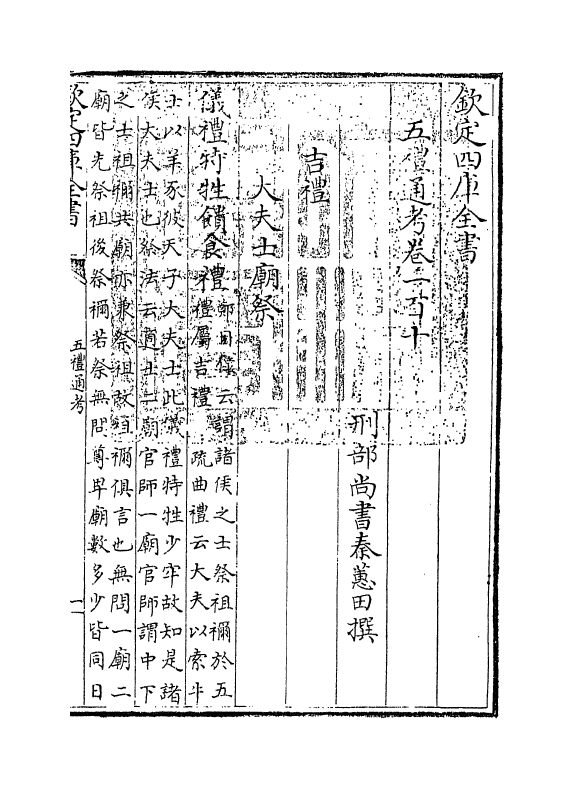 欽定四庫全書
五禮通考卷一百十
刑部尚書秦蕙田撰
吉禮
大夫士廟祭
儀禮特牲饋食禮
鄭目錄云謂諸侯之士祭祖禰於五
禮屬吉禮 疏曲禮云大夫以索牛
士以羊豕彼天子大夫士此儀禮特牲少牢故知是諸
侯大夫士也祭法云適士二廟官師一廟官師謂中下
之士祖禰共廟亦兼祭祖故祖禰俱言也無問一廟二
廟皆先祭祖後祭禰若祭無問尊卑廟數多少皆同日
欽定四庫全書
五禮通考
一